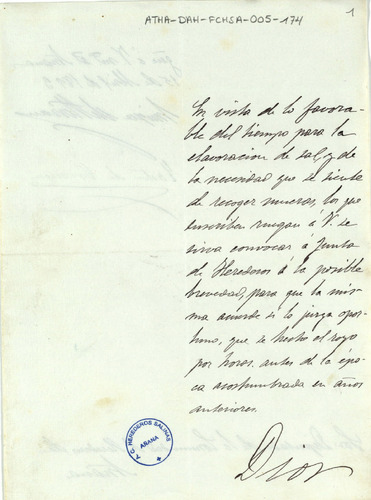 ATHA-DAH-FCHSA-005-174
1
En vista de lo favora-
ble del tiempo para la
elavoracion de sal, y de
la necesidad que se siente
de recoger mueras, los que
suscriben ruegan á V. se
sirva convocar á Junta
de Herederos á la posible
brevedad, para que la mis-
ma acuerde si lo juzga opor-
tuno, que se hecho el royo
por horas antes de la épo-
ca acostumbrada en años
anteriores.
Dios
A.C. HEREDEROS SALINAS
AÑANA